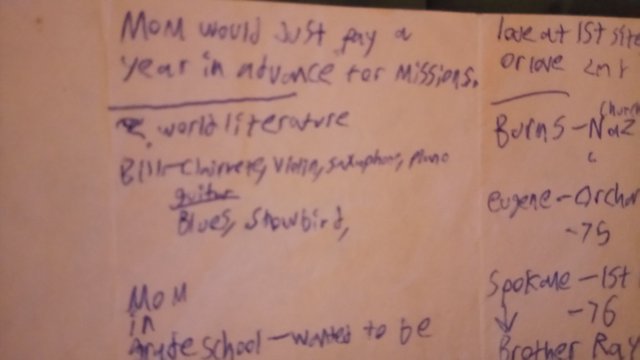 Mom would Just pay a
year in advance for missions.
world literature
Bill - Clairnete, Violin, saxaphone, piano
guitar
Blues, Snowbird,
Mom
in
grade school - wanted to be
love at 1st site
or love
Church
Burns - Naz
eugene - Orchar
-75
Spokane - 1st
-76
Brother Ray